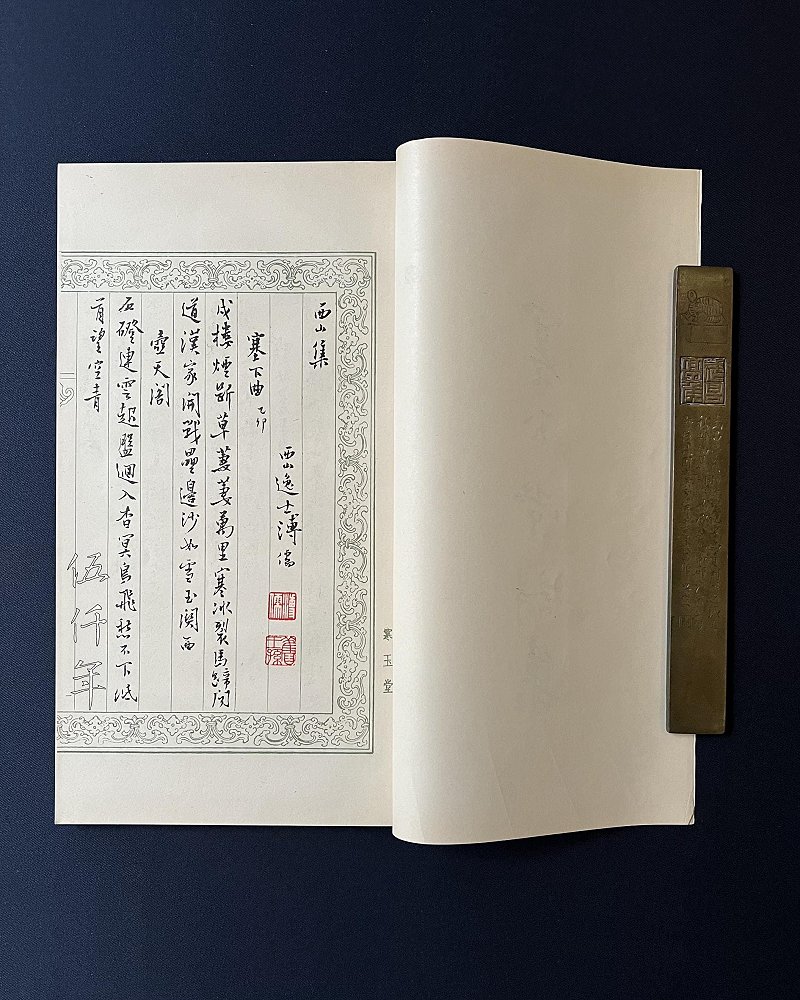 寒玉堂
西山集
西山逸士溥儒
塞下曲 乙卯
戍樓煙斷草萋萋萬里寒冰裂馬蹄聞
道漢家開戰壘邊沙如雪玉關西
壺天閣
石磴連雲起盤迴入杳冥鳥飛愁不下低
首望空青
伍仟年